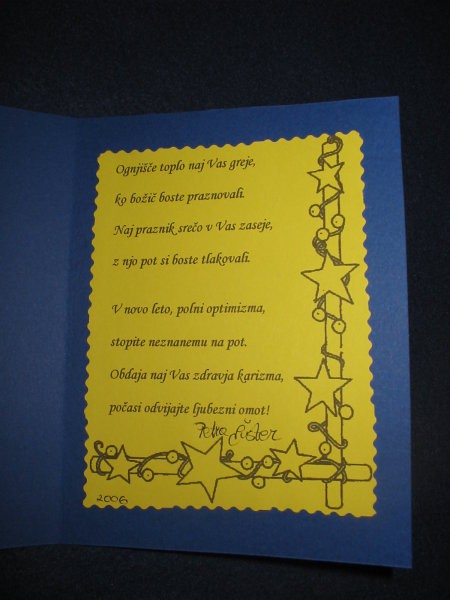 Ognjišče toplo naj Vas greje,
ko božič boste praznovali.
Naj praznik srečo v Vas zaseje,
z njo pot si boste tlakovali.
V novo leto, polni optimizma,
stopite neznanemu na pot.
Obdaja naj Vas zdravja karizma,
počasi odvijajte ljubezni omot!
Petra
2006